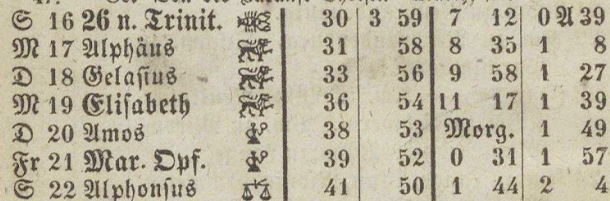 S 16 26 n. Trinit. 30 3 59 7 12 0 A 39
M 17 Alphäus 31 58 8 35 1 8
D 18 Gelasius 33 56 9 58 1 27
M 19 Elisabeth 36 54 11 17 1 39
D 20 Amos 38 53 Morg. 1 49
Fr 21 Mar. Opf. 39 52 0 31 1 57
S 22 Alphonsus 41 50 1 44 2 4